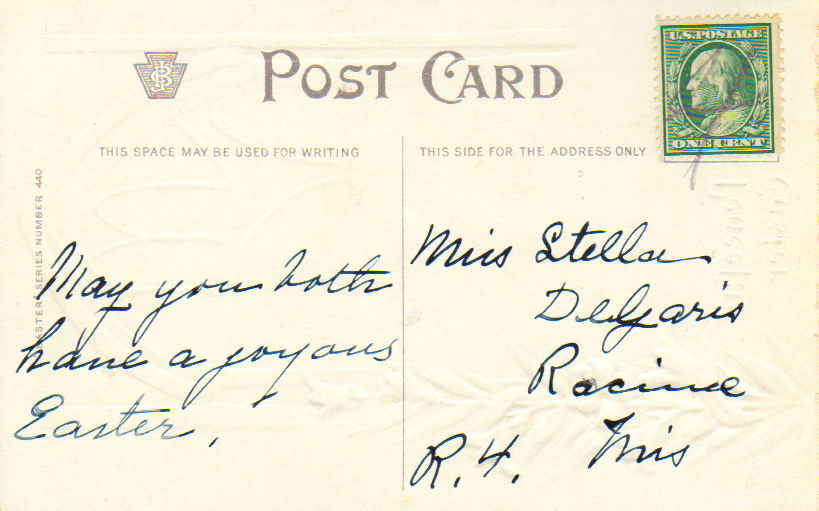 POST CARD
U.S. POSTAGE
ONE CENT
THIS SPACE MAY BE USED FOR WRITING
THIS SIDE FOR THE ADDRESS ONLY
EASTER SERIES NUMBER 440
May you both
have a joyous
Easter.
Miss Stella
DeGaris
Racine
R. 4. Wis